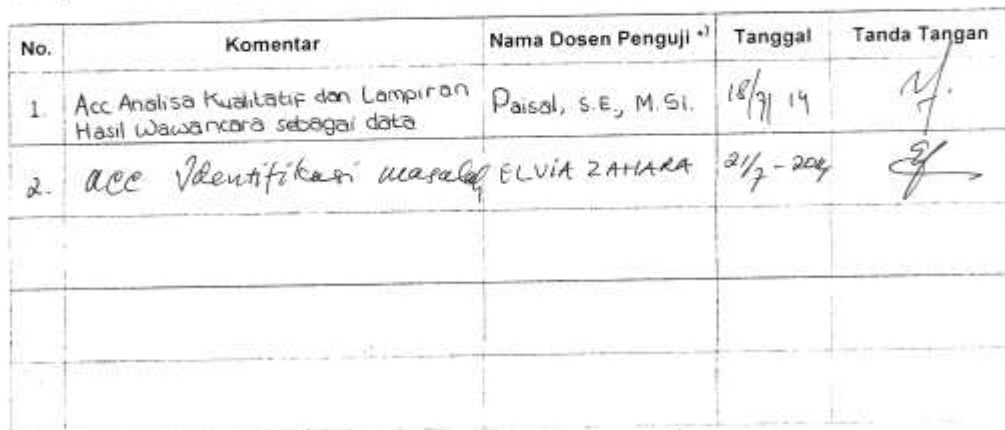 No. Komentar Nama Dosen Penguji *) Tanggal Tanda Tangan
1. Acc Analisa Kualitatif dan Lampiran Hasil Wawancara sebagai data Paisal, S.E., M.Si. 18/7 14
2. acc Identifikasi masalah ELVIA ZAHARA 21/7-2014